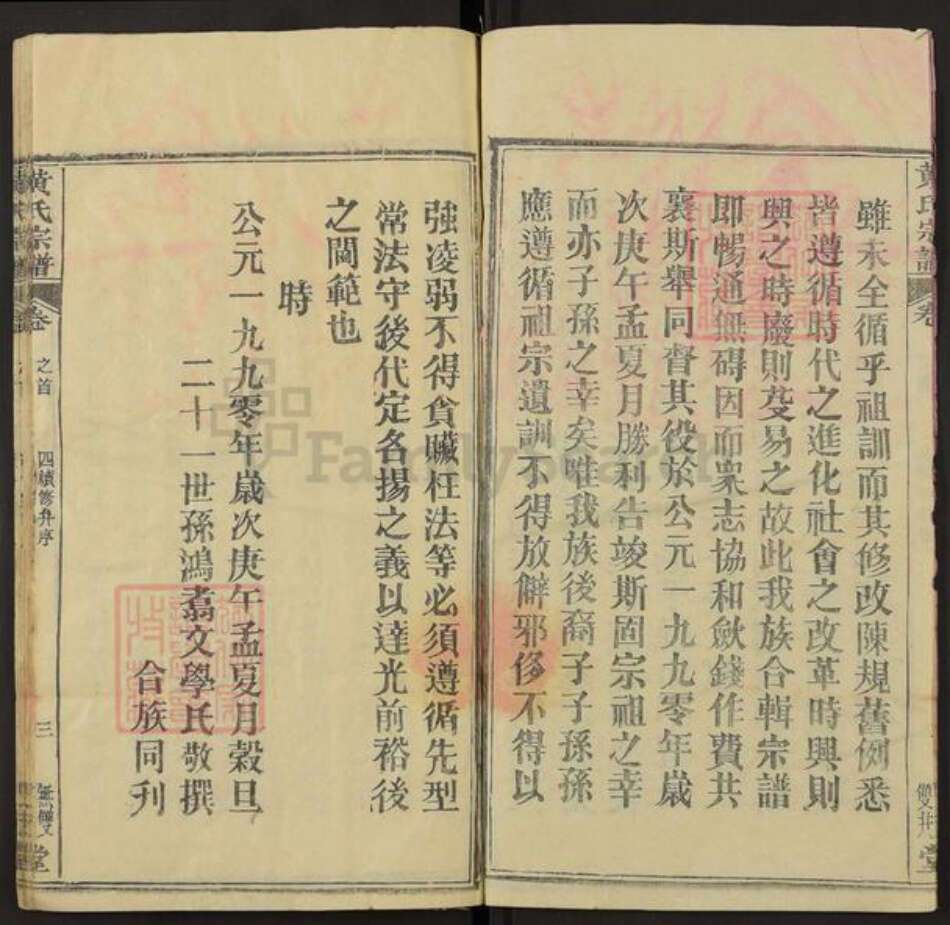 雖未全循乎祖訓而其修改陳規舊例悉
皆遵循時代之進化社會之改革時興則
興之時廢則芟易之故此我族合輯宗譜
即暢通無碍因而衆志協和歛錢作費共
襄斯舉同督其役於公元一九九零年歲
次庚午孟夏月勝利告竣斯固宗祖之幸
而亦子孫之幸矣唯我族後裔子子孫孫
應遵循祖宗遺訓不得放僻邪侈不得以
強凌弱不得貪贜枉法等必須遵循先型
常法守後代定各揚之義以達光前裕後
之閫範也
時
公元一九九零年歲次庚午孟夏月穀旦
二十一世孫鴻翥文學氏敬撰
合族同刋
黃氏宗譜
卷
之首
四續修弁序
三
雙井堂
FamilySearch